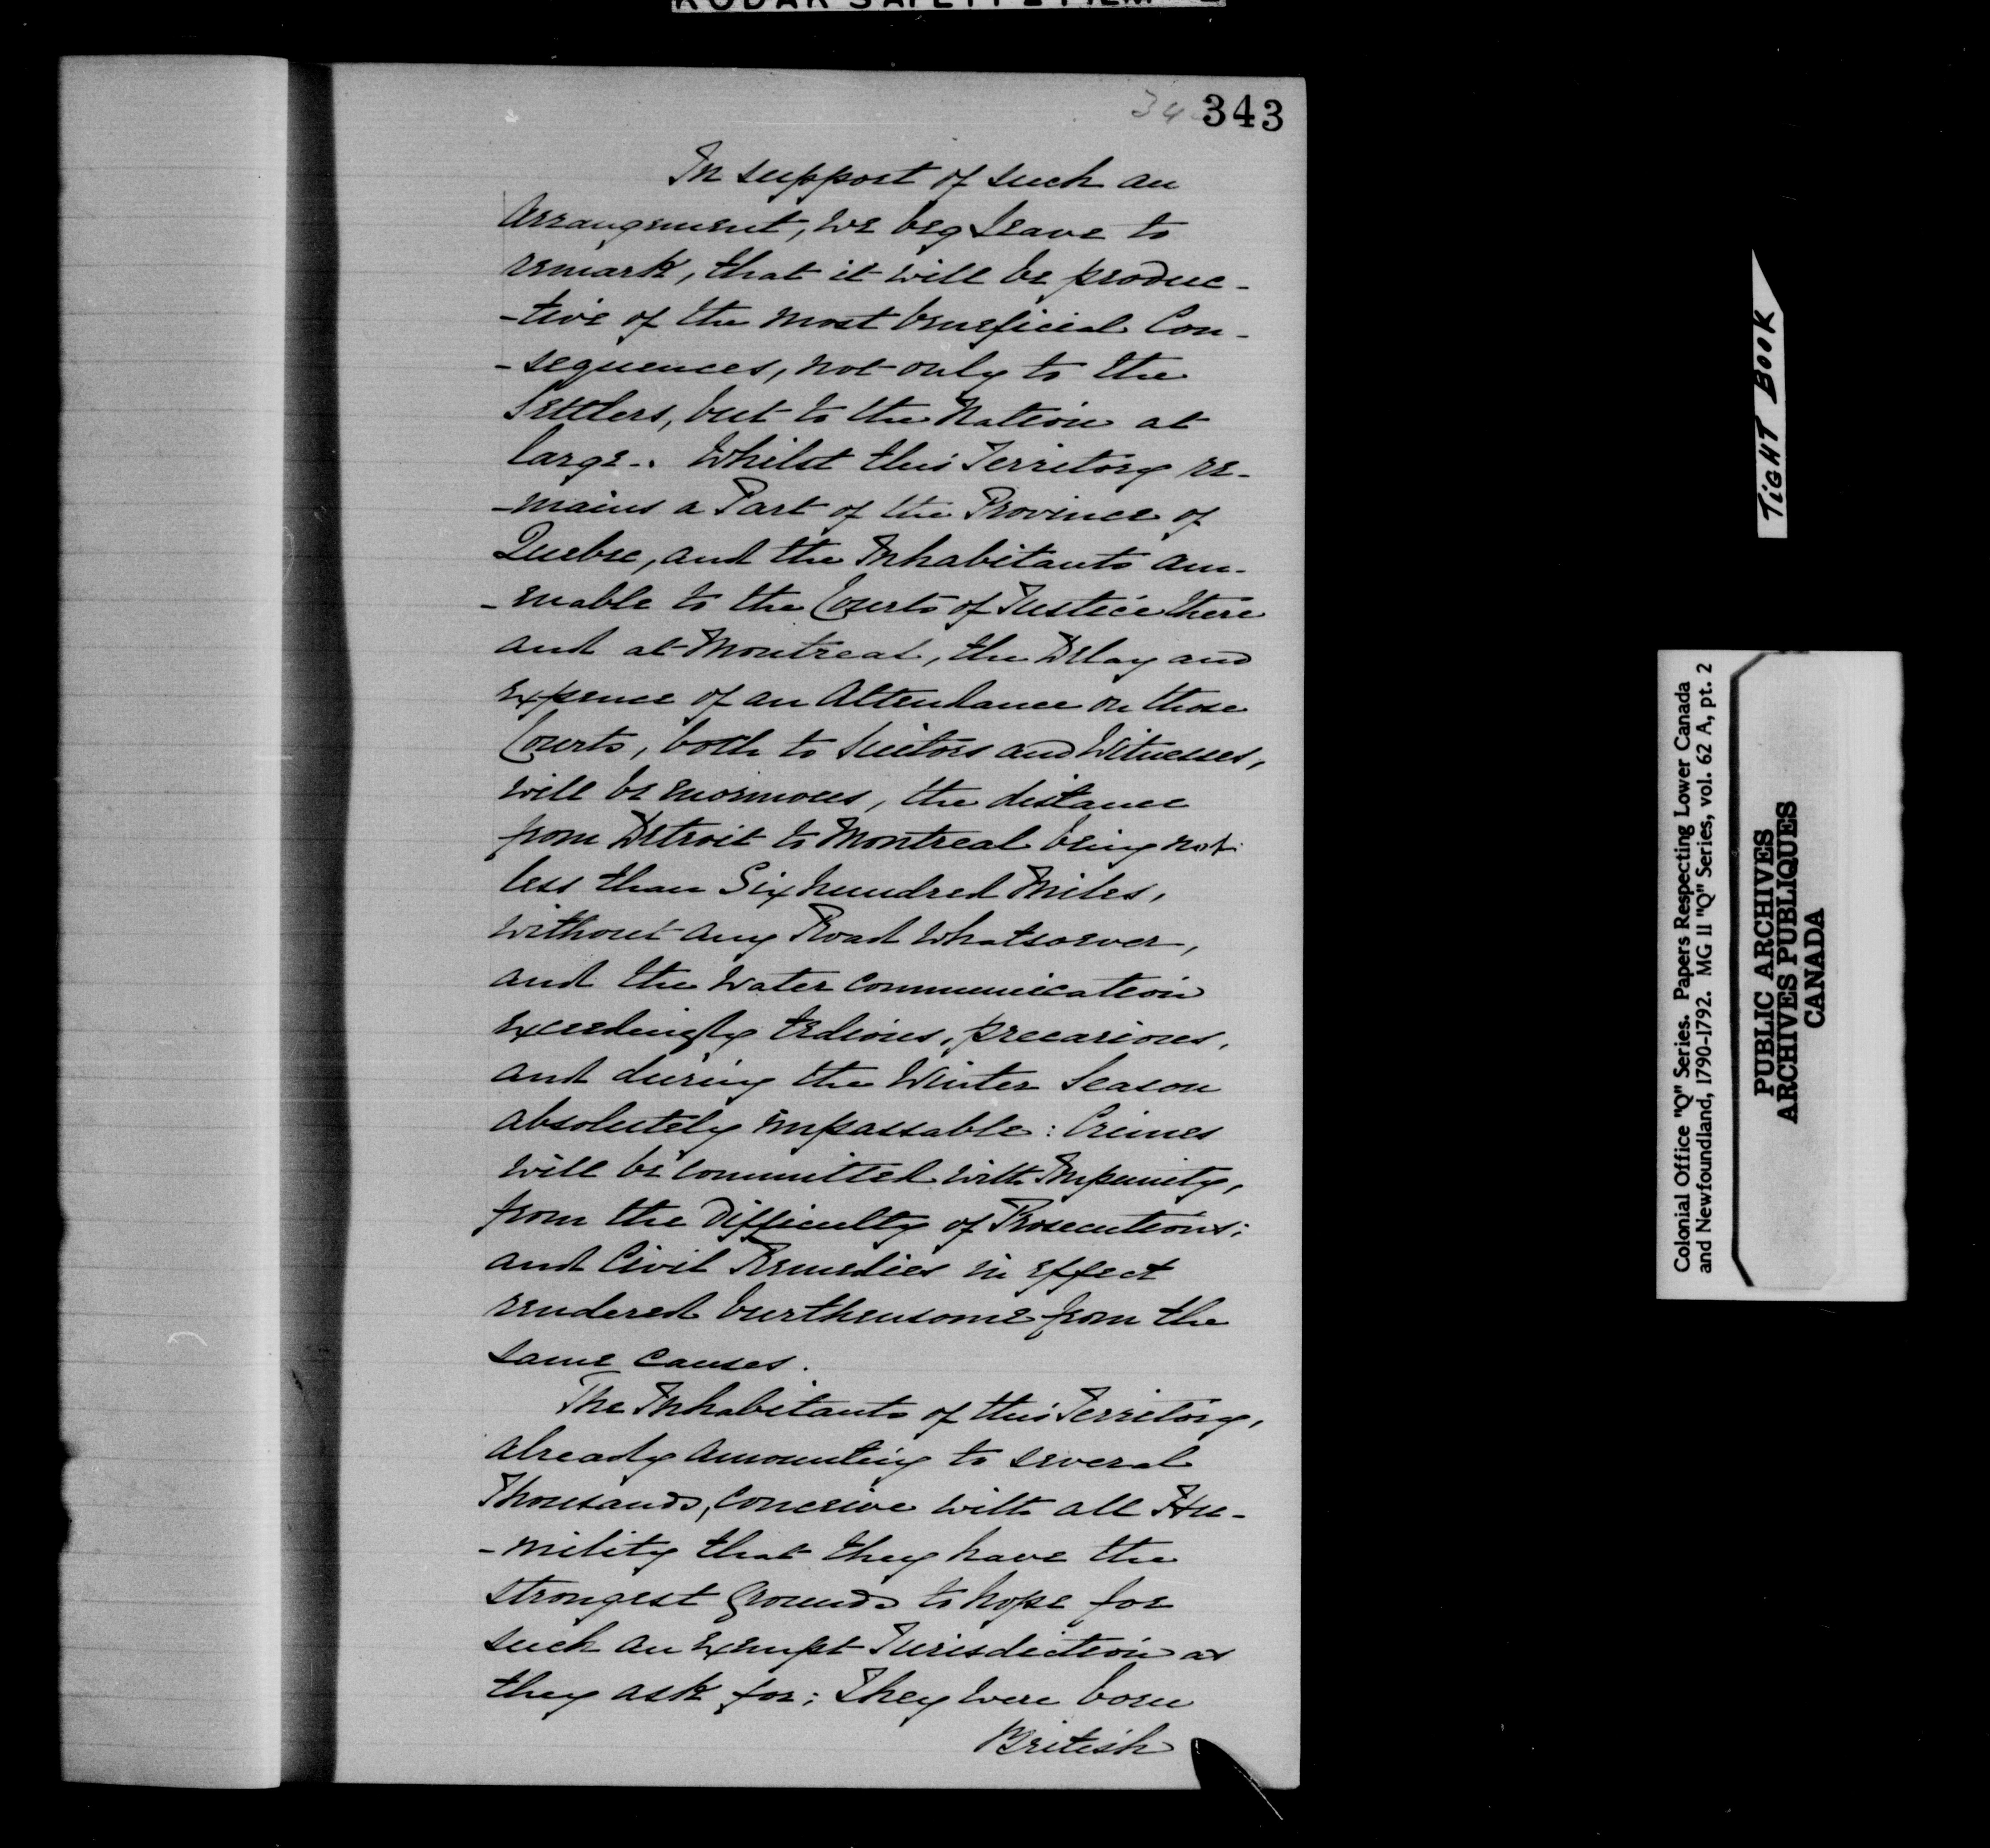 KODAK SAFETY FILM
343
In support of such an
Arrangement, we beg Leave to
remark, that it will be produc-
-tive of the most beneficial Con-
-sequences, not only to the
Settlers, but to the Nation at
large. Whilst this Territory re-
-mains a Part of the Province of
Quebec, and the Inhabitants am-
-enable to the Courts of Justice there
and at Montreal, the Delay and
Expence of an Attendance on those
Courts, both to Suitors and Witnesses,
will be enormous, the distance
from Detroit to Montreal being not
less than Six hundred Miles,
without any Road whatsoever,
and the Water Communication
exceedingly tedious, precarious,
and during the Winter Season
absolutely impassable: Crimes
will be committed with Impunity,
from the Difficulty of Prosecutions;
and Civil Remedies in effect
rendered burthensome from the
same causes.
The Inhabitants of this Territory,
already amounting to several
Thousands, conceive with all Hu-
-mility that they have the
strongest Grounds to hope for
such an exempt Jurisdiction as
they ask for; They were born
British
TIGHT BOOK
Colonial Office "Q" Series. Papers Respecting Lower Canada
and Newfoundland, 1790-1792. MG 11 "Q" Series, vol. 62 A, pt. 2
PUBLIC ARCHIVES
ARCHIVES PUBLIQUES
CANADA